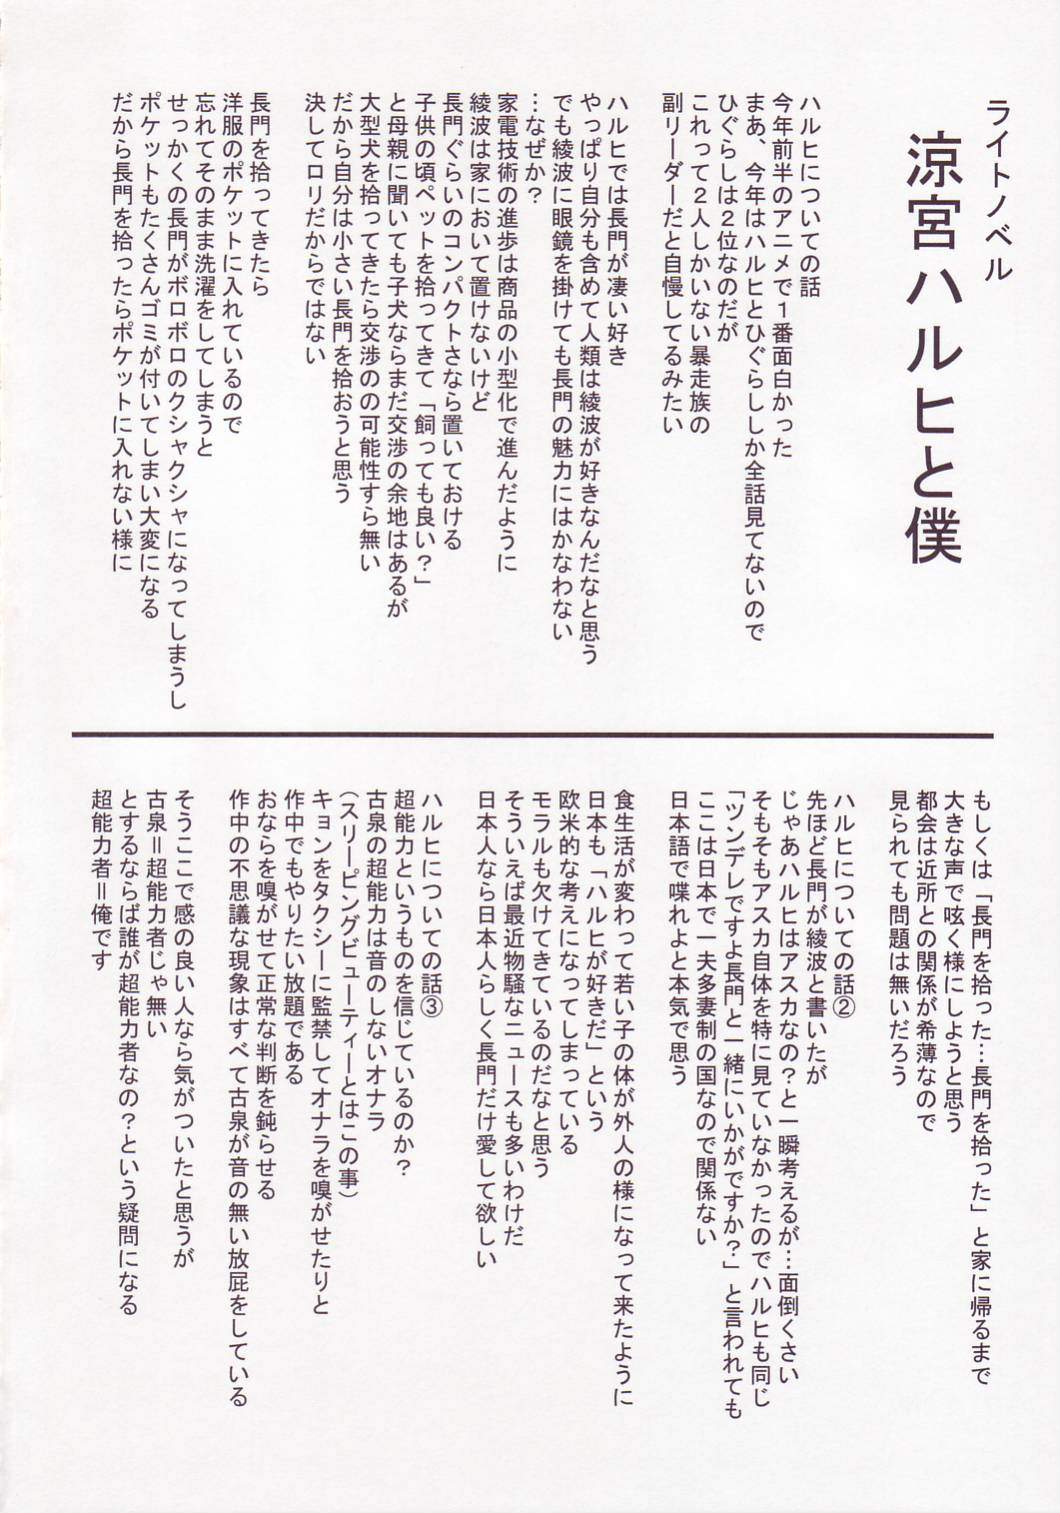 ライトノベル
涼宮ハルヒと僕
ハルヒについての話
今年前半のアニメで１番面白かった
まあ、今年はハルヒとひぐらししか全話見てないので
ひぐらしは２位なのだが
これって２人しかいない暴走族の
副リーダーだと自慢してるみたい
ハルヒでは長門が凄い好き
やっぱり自分も含めて人類は綾波が好きなんだなと思う
でも綾波に眼鏡を掛けても長門の魅力にはかなわない
…なぜか？
家電技術の進歩は商品の小型化で進んだように
綾波は家において置けないけど
長門ぐらいのコンパクトさなら置いておける
子供の頃ペットを拾ってきて「飼っても良い？」
と母親に聞いても子犬ならまだ交渉の余地はあるが
大型犬を拾ってきたら交渉のの可能性すら無い
だから自分は小さい長門を拾おうと思う
決してロリだからではない
長門を拾ってきたら
洋服のポケットに入れているので
忘れてそのまま洗濯をしてしまうと
せっかくの長門がボロボロのクシャクシャになってしまうし
ポケットもたくさんゴミが付いてしまい大変になる
だから長門を拾ったらポケットに入れない様に
もしくは「長門を拾った…長門を拾った」と家に帰るまで
大きな声で呟く様にしようと思う
都会は近所との関係が希薄なので
見られても問題は無いだろう
ハルヒについての話②
先ほど長門が綾波と書いたが
じゃあハルヒはアスカなの？と一瞬考えるが…面倒くさい
そもそもアスカ自体を特に見ていなかったのでハルヒも同じ
「ツンデレですよ長門と一緒にいかがですか？」と言われても
ここは日本で一夫多妻制の国なので関係ない
日本語で喋れよと本気で思う
食生活が変わって若い子の体が外人の様になって来たように
日本も「ハルヒが好きだ」という
欧米的な考えになってしまっている
モラルも欠けてきているのだなと思う
そういえば最近物騒なニュースも多いわけだ
日本人なら日本人らしく長門だけ愛して欲しい
ハルヒについての話③
超能力というものを信じているのか？
古泉の超能力は音のしないオナラ
（スリーピングビューティーとはこの事）
キョンをタクシーに監禁してオナラを嗅がせたりと
作中でもやりたい放題である
おならを嗅がせて正常な判断を鈍らせる
作中の不思議な現象はすべて古泉が音の無い放屁をしている
そうここで感の良い人なら気がついたと思うが
古泉＝超能力者じゃ無い
とするならば誰が超能力者なの？という疑問になる
超能力者＝俺です